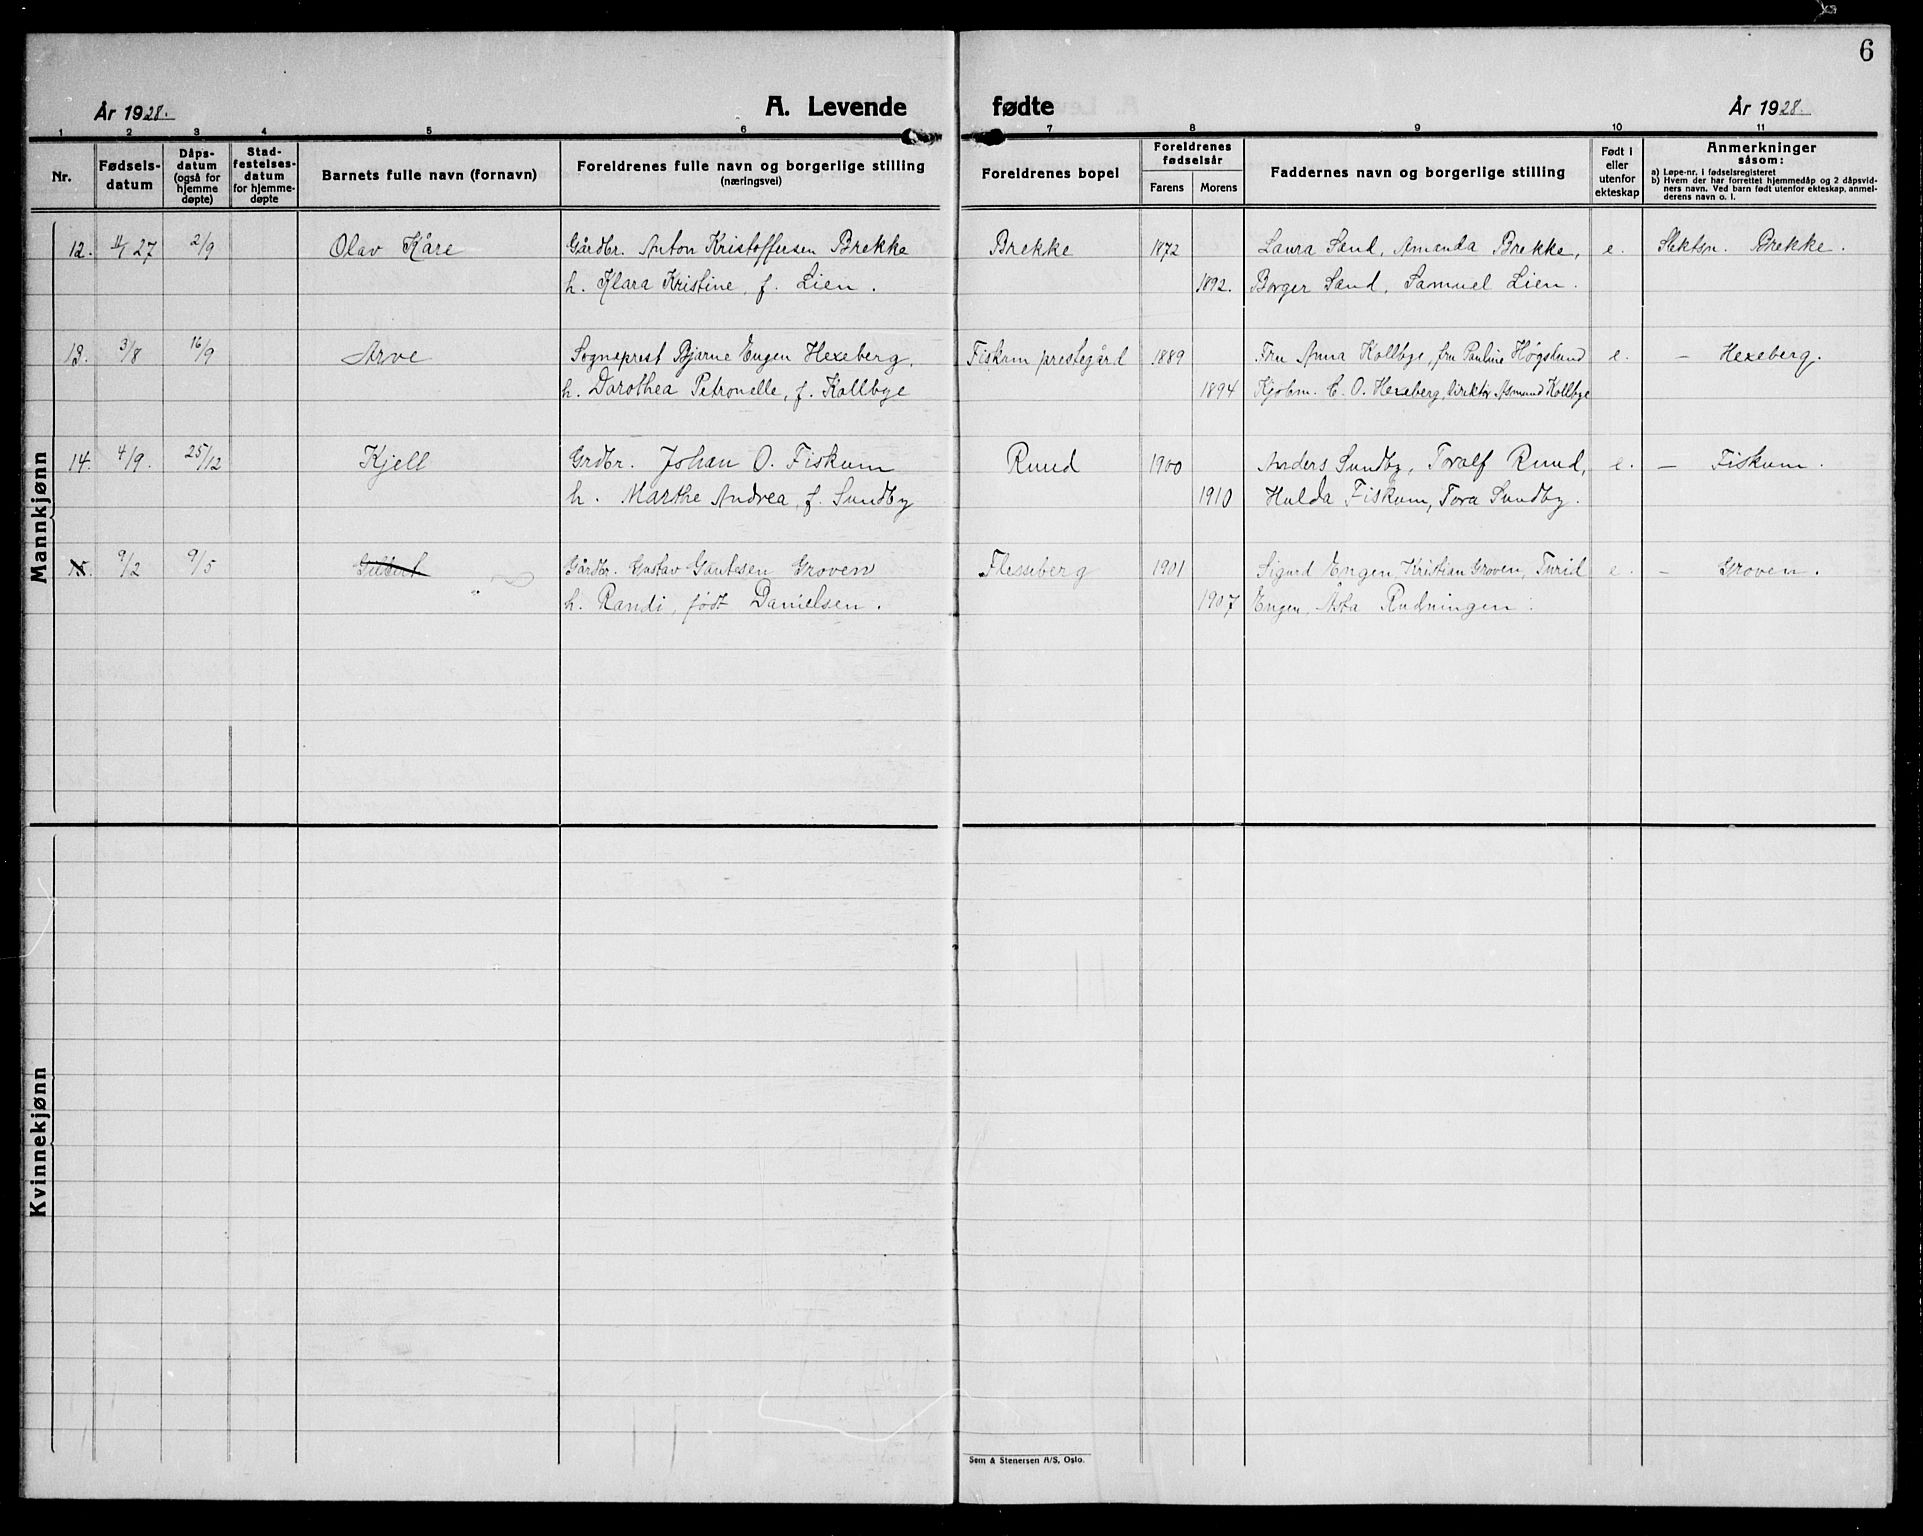 6
År 1928.
A. Levende
fødte
År 1928.
1 2 3 4 5 6 7 8 9 10 11
Nr.
Fødsels-
datum
Dåps-
datum
(også for
hjemme
døpte)
Stad-
festelses-
datum
for hjemme-
døpte
Barnets fulle navn (fornavn)
Foreldrenes fulle navn og borgerlige stilling
(næringsvei)
Foreldrenes bopel
Foreldrenes
fødselsår
Farens Morens
Faddernes navn og borgerlige stilling
Født i
eller
utenfor
ekteskap
Anmerkninger
såsom:
a) Løpe-nr. i fødselsregisteret
b) Hvem der har forrettet hjemmedåp og 2 dåpsvid-
ners navn. Ved barn født utenfor ekteskap, anmel-
derens navn o. l.
Mannkjønn
12. 11/27 2/9 Olav Kåre Gårdbr. Anton Kristoffersen Brekke Brekke 1872 Laura Sand, Amanda Brekke, e. Slektsn. Brekke.
h. Klara Kristine, f. Lien. 1892. Borger Sand, Samuel Lien.
13. 3/8 16/9 Arve Sogneprest Bjarne Engen Hexeberg, Fiskum prestegård 1889 Fru Anna Kollbye, fru Pauline Høgslund e. — Hexeberg.
h. Dorothea Petronelle, f. Kollbye 1894 Kjøbm. C. O. Hexeberg, direktør Asmund Kollbye
14. 4/9. 25/12 Kjell Grdbr. Johan O. Fiskum Ruud 1900 Anders Sundby, Toralf Ruud, e. — Fiskum.
h. Marthe Andrea, f. Sundby 1910 Hulda Fiskum, Tora Sundby.
15. 9/2 9/5 Gårdbr. Gustav Gautesen Groven Flesseberg 1901 Sigurd Engen, Kristian Groven, Turid e. — Groven.
h. Randi, født Danielsen. 1907 Engen, Åsta Rudningen.
Kvinnekjønn
Sem & Stenersen A/S, Oslo.